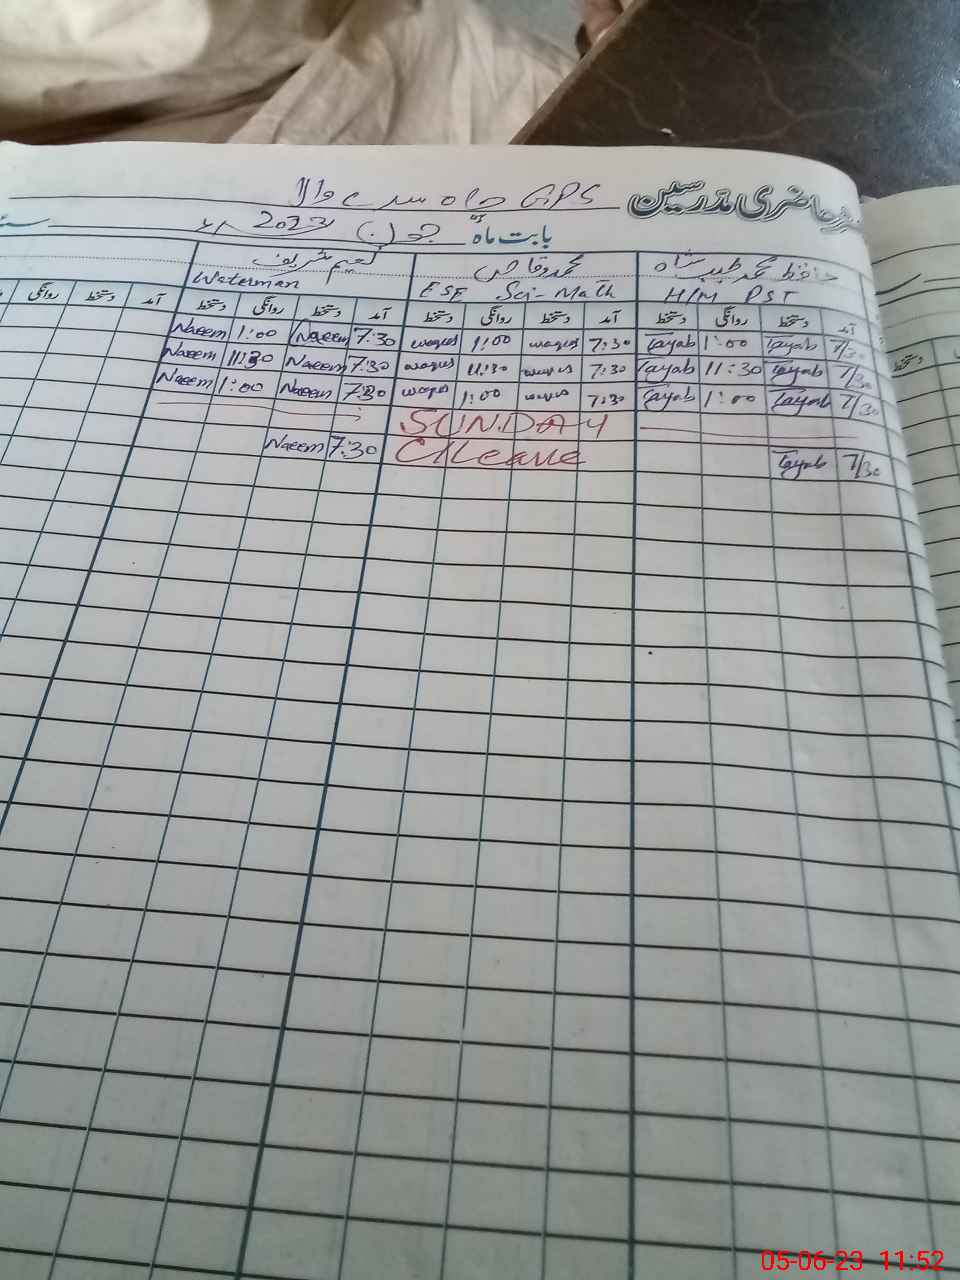 حاضری مدرسین GPS چاہ سدے والا
بابت ماہ جون 2023ء
حافظ محمد طیب شاہ محمد وقاص نعیم شریف
H/M PST ESE Sci-Math Waterman
آمد دستخط روانگی دستخط آمد دستخط روانگی دستخط آمد دستخط روانگی دستخط آمد دستخط روانگی
7/30 Tayab 1:00 Tayab 7:30 waqas 1:00 waqas 7:30 Naeem 1:00 Naeem
7/30 Tayab 11:30 Tayab 7:30 waqas 11:30 waqas 7:30 Naeem 11:30 Naeem
7/30 Tayab 1:00 Tayab 7:30 waqas 1:00 waqas 7:30 Naeem 1:00 Naeem
SUNDAY
7/30 Tayab 7:30 Naeem
05-06-23 11:52